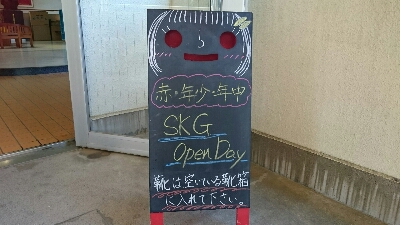 赤・年少・年中
SKG
Open Day
靴は空いている靴箱
に入れて下さい。